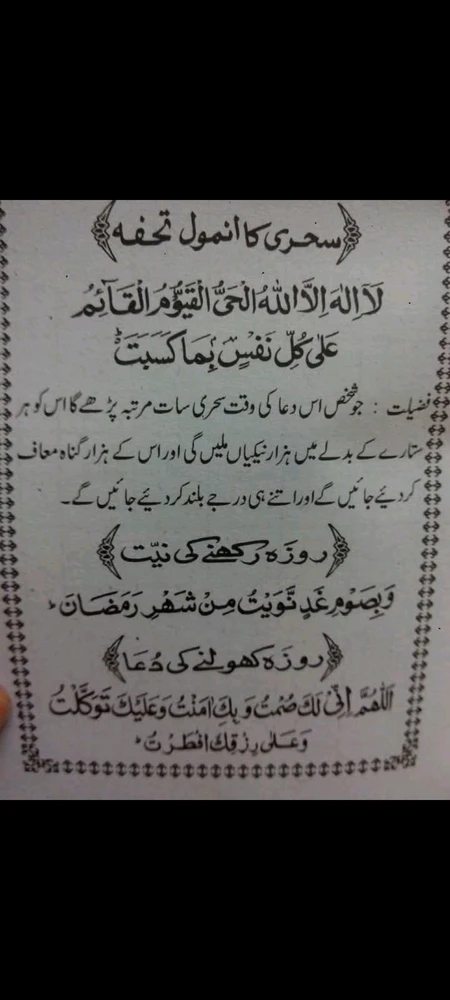 سحری کا انمول تحفہ
لَآ اِلٰهَ اِلَّا اللّٰهُ الْحَیُّ الْقَیُّوْمُ الْقَآئِمُ
عَلٰی کُلِّ نَفْسٍ بِمَا کَسَبَتْ ؕ
فضیلت : جو شخص اس دعا کی وقت سحری سات مرتبہ پڑھے گا اس کو ہر
ستارے کے بدلے میں ہزار نیکیاں ملیں گی اور اس کے ہزار گناہ معاف
کر دیئے جائیں گے اور اتنے ہی درجے بلند کر دیئے جائیں گے۔
روزہ رکھنے کی نیّت
وَبِصَوْمِ غَدٍ نَّوَیْتُ مِنْ شَهْرِ رَمَضَانَ
روزہ کھولنے کی دُعَا
اَللّٰهُمَّ اِنِّیْ لَكَ صُمْتُ وَبِكَ اٰمَنْتُ وَعَلَیْكَ تَوَکَّلْتُ
وَعَلٰی رِزْقِكَ اَفْطَرْتُ